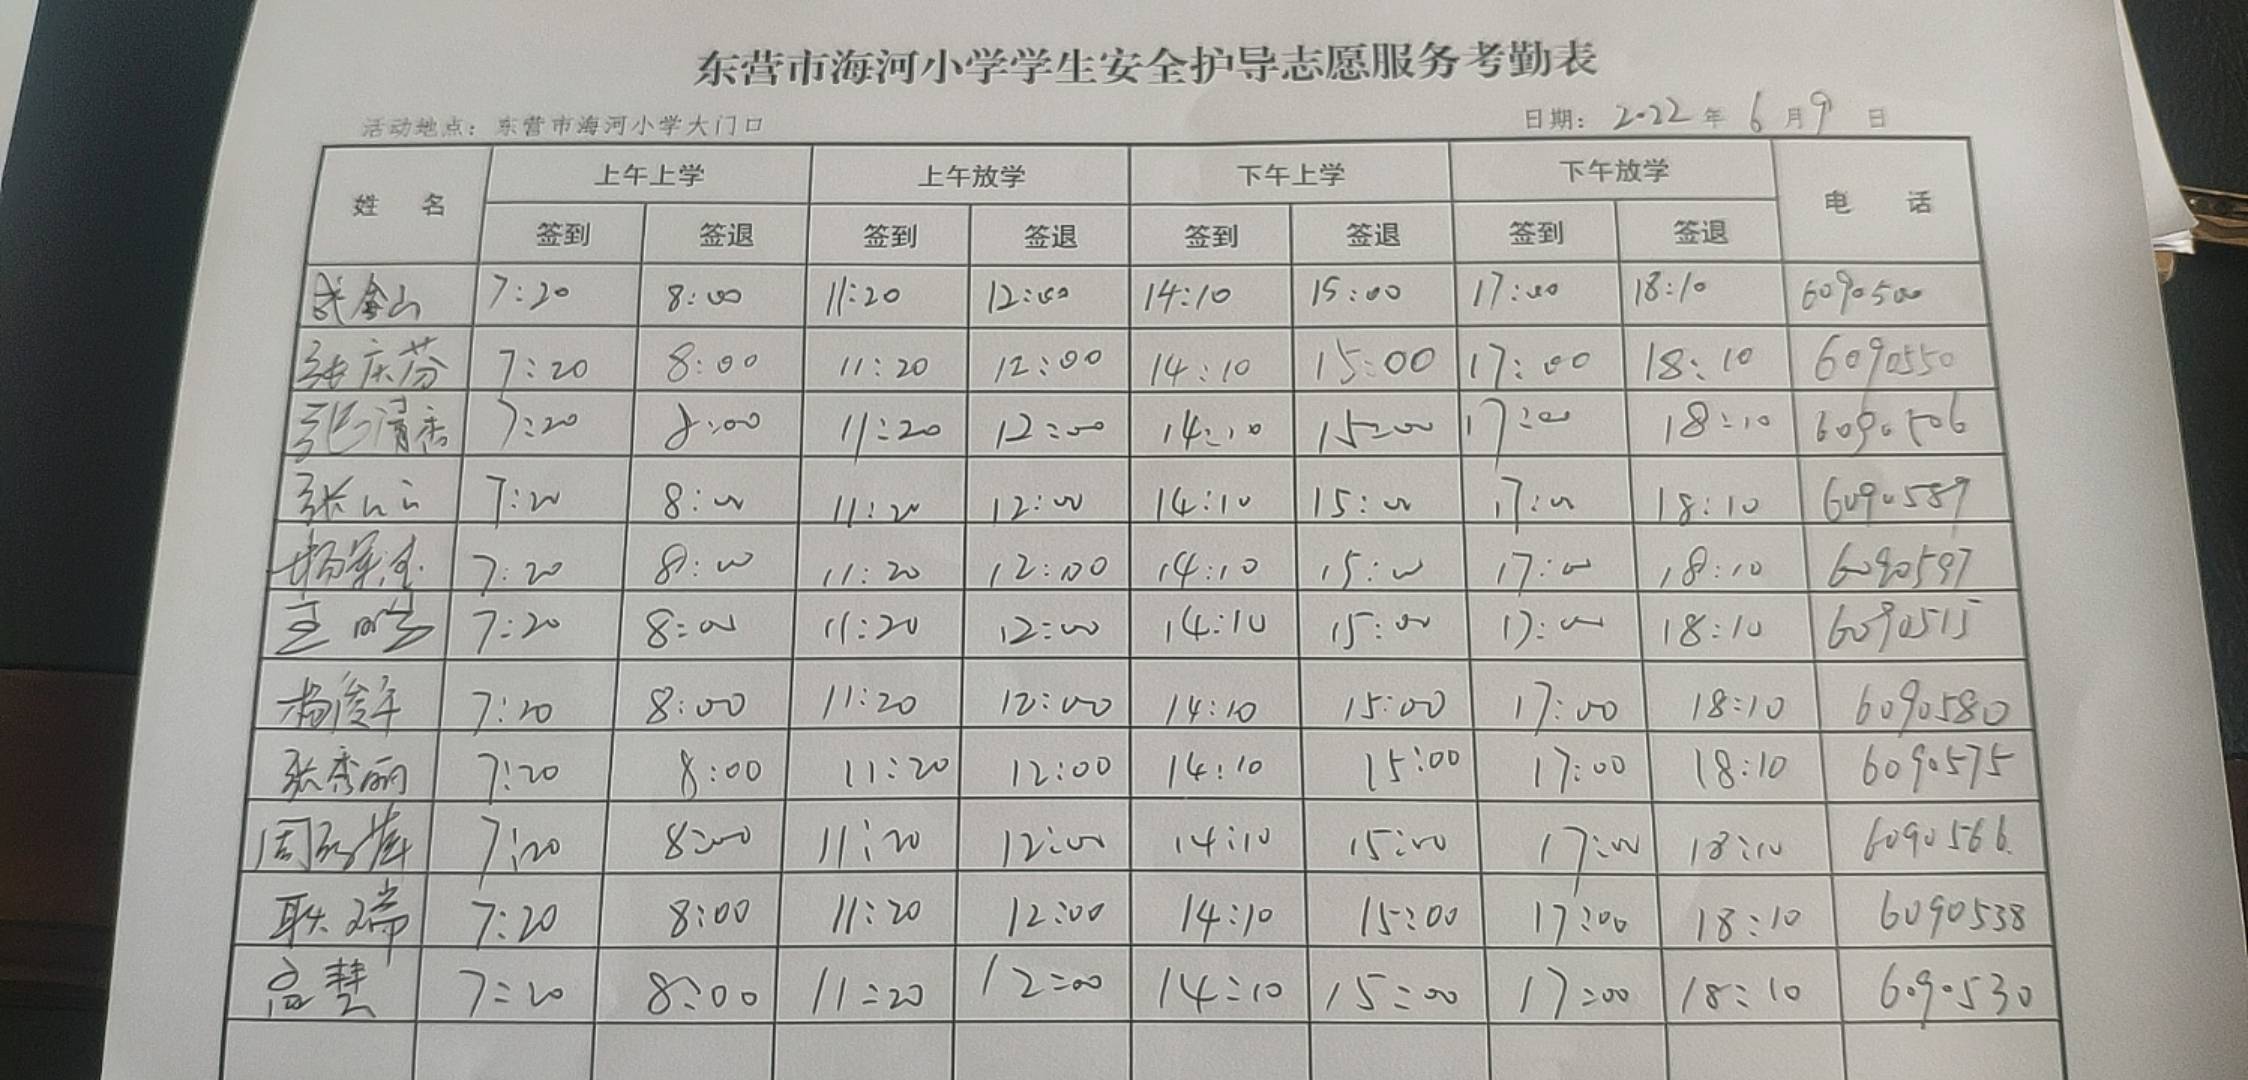 东营市海河小学学生安全护导志愿服务考勤表
活动地点：东营市海河小学大门口 日期：2022年6月9日
姓名 上午上学 上午放学 下午上学 下午放学 电话
签到 签退 签到 签退 签到 签退 签到 签退
金山 7:20 8:00 11:20 12:00 14:10 15:00 17:00 18:10 6090500
张庆芬 7:20 8:00 11:20 12:00 14:10 15:00 17:00 18:10 6090550
张清香 7:20 8:00 11:20 12:00 14:10 15:00 17:00 18:10 6090506
张 7:20 8:00 11:20 12:00 14:10 15:00 17:00 18:10 6090589
杨 7:20 8:00 11:20 12:00 14:10 15:00 17:00 18:10 6090597
王 7:20 8:00 11:20 12:00 14:10 15:00 17:00 18:10 6090515
杨俊军 7:20 8:00 11:20 12:00 14:10 15:00 17:00 18:10 6090580
张秀丽 7:20 8:00 11:20 12:00 14:10 15:00 17:00 18:10 6090575
周 7:20 8:00 11:20 12:00 14:10 15:00 17:00 18:10 6090566
耿瑞 7:20 8:00 11:20 12:00 14:10 15:00 17:00 18:10 6090538
高慧 7:20 8:00 11:20 12:00 14:10 15:00 17:00 18:10 6090530